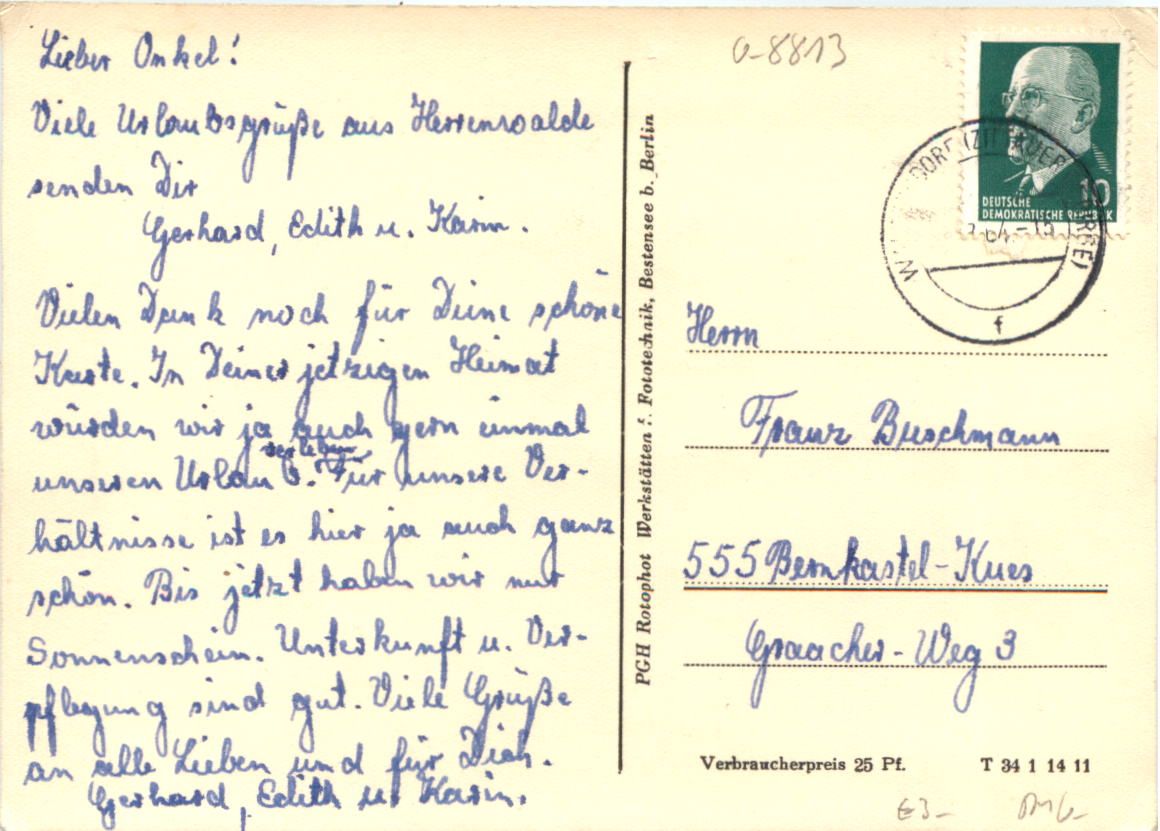 Lieber Onkel!
Viele Urlaubsgrüße aus Herrenwalde
senden Dir
Gerhard, Edith u. Karin.
Vielen Dank noch für Deine schöne
Karte. In Deiner jetzigen Heimat
würden wir ja auch gern einmal
unseren Urlaub verleben. Für unsere Ver-
hältnisse ist es hier ja auch ganz
schön. Bis jetzt haben wir nur
Sonnenschein. Unterkunft u. Ver-
pflegung sind gut. Viele Grüße
an alle Lieben und für Dich.
Gerhard, Edith u. Karin.
PGH Rotophot Werkstätten f. Fototechnik, Bestensee b. Berlin
G-8813
10
DEUTSCHE
DEMOKRATISCHE REPUBLIK
64-15
f
Herrn
Franz Buschmann
555 Bernkastel-Kues
Graacher-Weg 3
Verbraucherpreis 25 Pf.
T 34 1 14 11
€3-